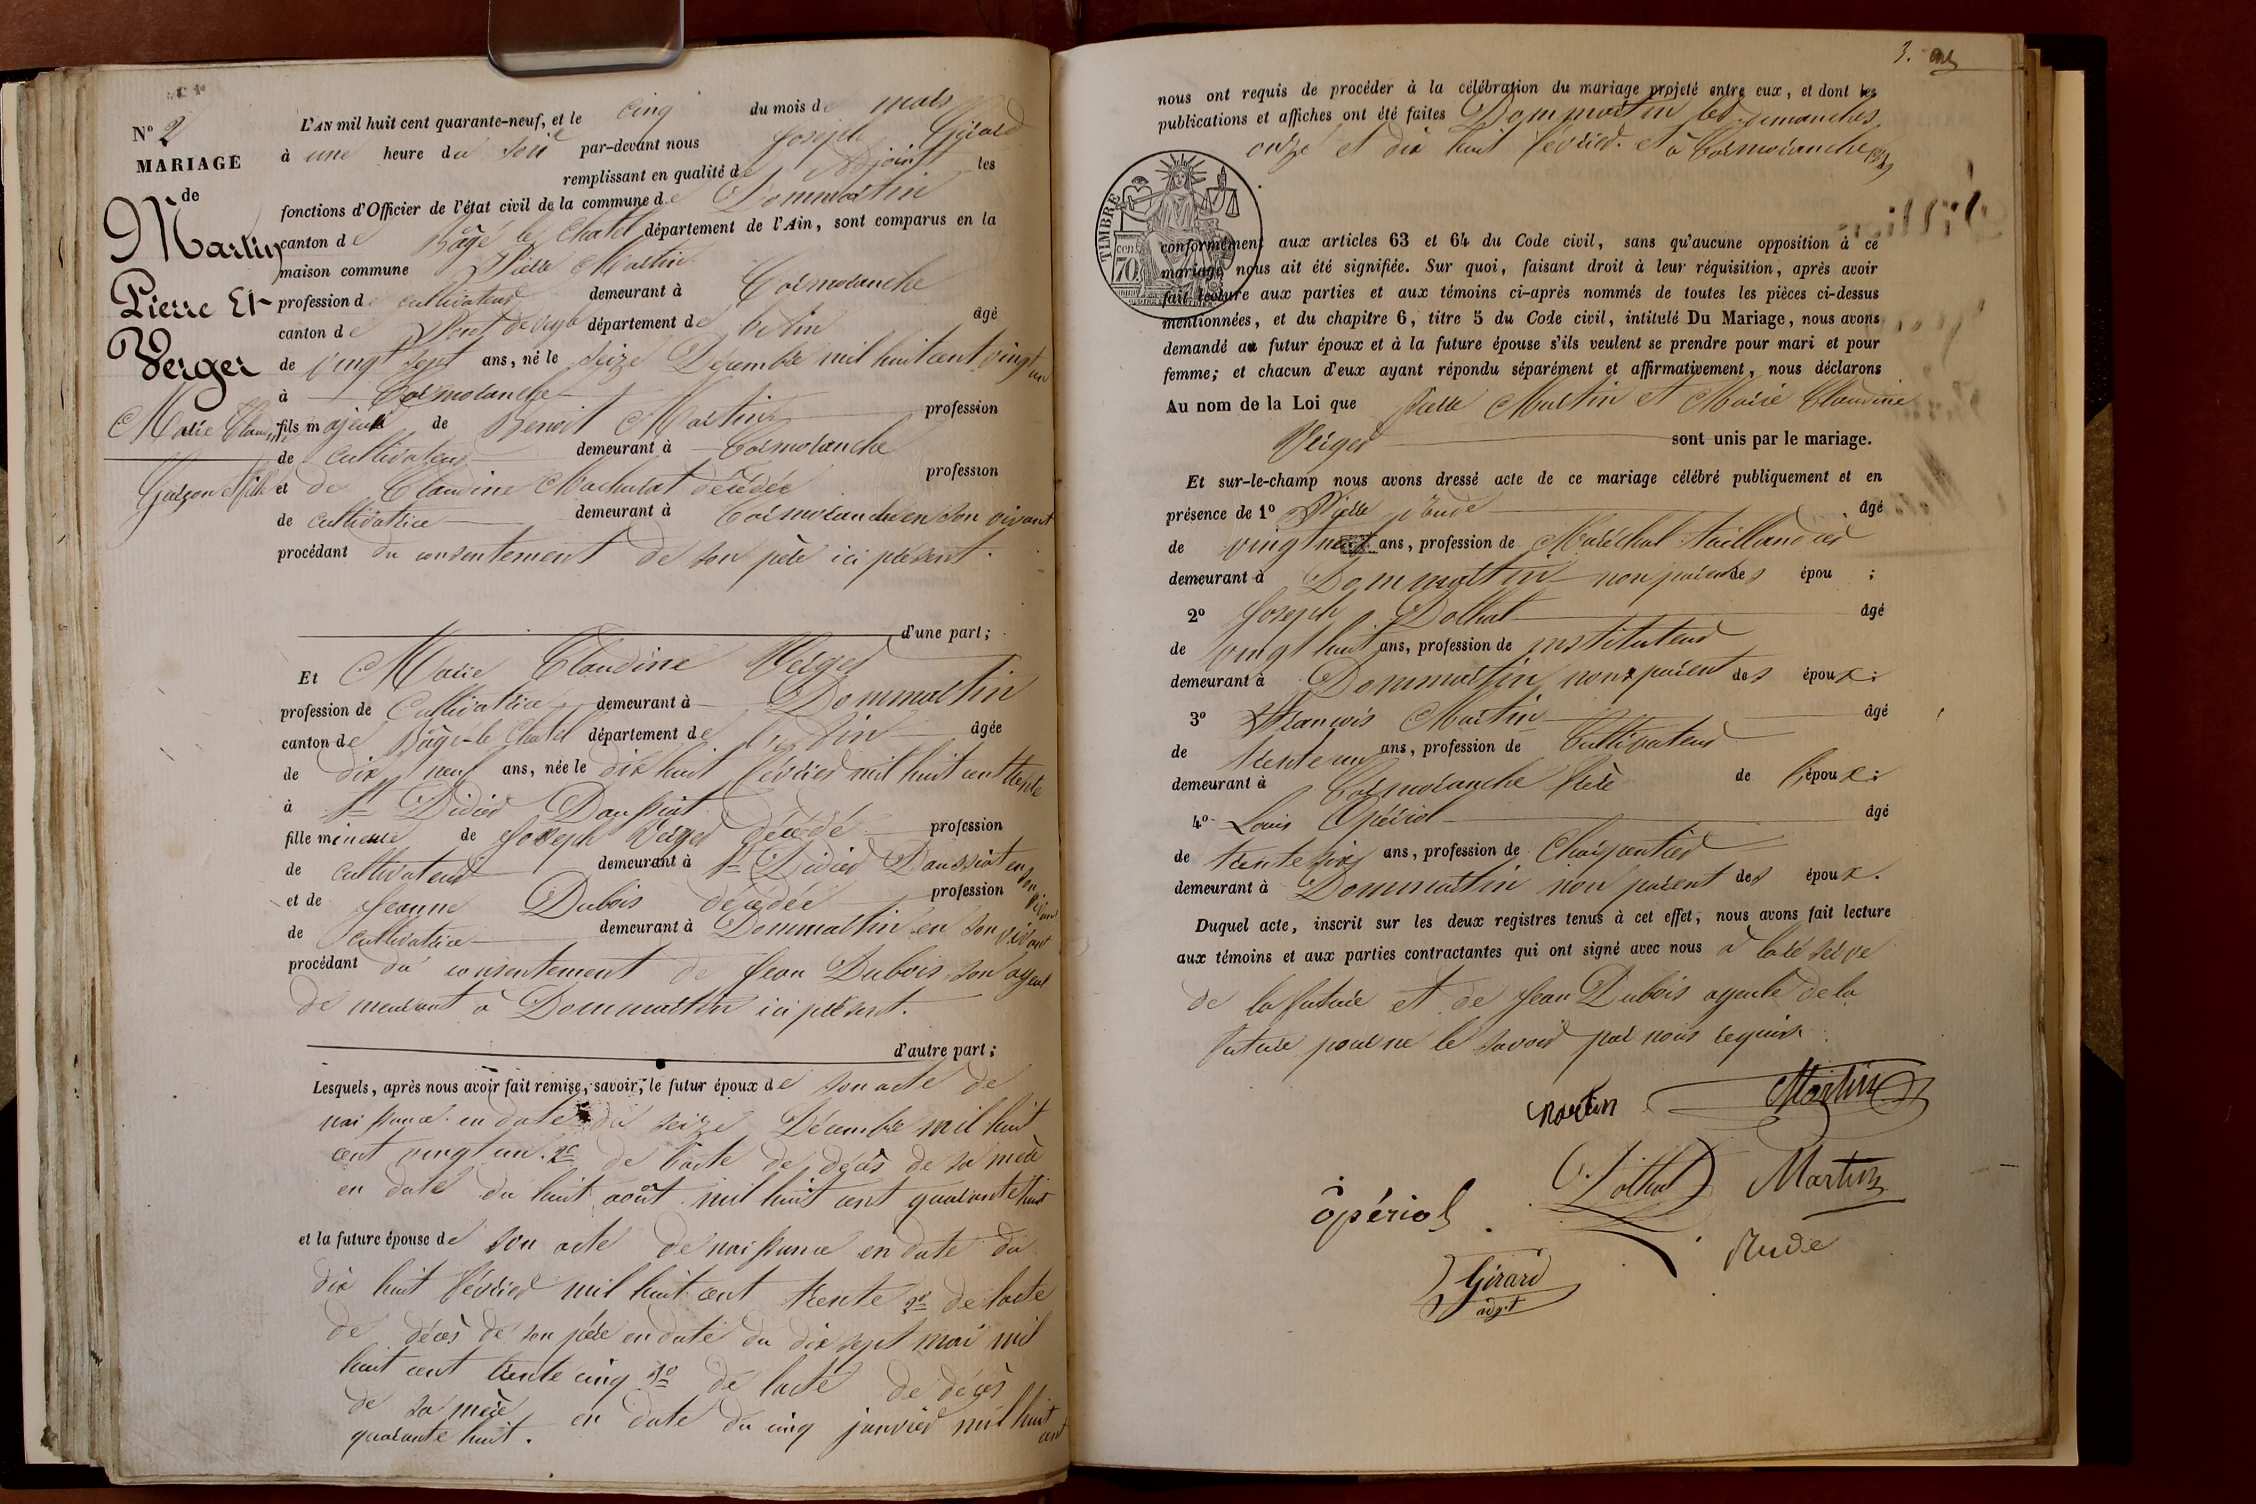 N° 2
MARIAGE
de
Martin
Pierre Et
Verger
Marie Claudine
Garçon et fille
L'AN mil huit cent quarante-neuf, et le cinq du mois de mars
à une heure du soir par-devant nous Joseph Girard
remplissant en qualité d'adjoint les
fonctions d'Officier de l'état civil de la commune de Dommartin
canton de Bâgé le Chatel département de l'Ain, sont comparus en la
maison commune Pierre Martin
profession de cultivateur demeurant à Cormoranche
canton de Pont de veyle département de l'Ain âgé
de vingt sept ans, né le seize Décembre mil huit cent vingt un
à Cormoranche
fils majeur de Benoit Martin profession
de cultivateur demeurant à Cormoranche
et de Claudine décédée profession
de cultivatrice demeurant à Cormoranche en son vivant
procédant du consentement de son père ici présent.
d'une part;
Et Marie Claudine Verger
profession de Cultivatrice demeurant à Dommartin
canton de Bâgé-le Chatel département de l'Ain âgée
de dix neuf ans, née le dix huit février mil huit cent trente
à St Didier Daussiat
fille mineure de Joseph Verger décédé profession
de cultivateur demeurant à St Didier Daussiat en son vivant
et de Jeanne Dubois décédée profession
de cultivatrice demeurant à Dommartin en son vivant
procédant du consentement de Jean Dubois son ayeul
demeurant à Dommartin ici présent.
d'autre part;
Lesquels, après nous avoir fait remise, savoir, le futur époux de son acte de
naissance en date du seize Décembre mil huit
cent vingt un. 2° de l'acte de décès de sa mère
en date du huit août mil huit cent quarante huit
et la future épouse de son acte de naissance en date du
dix huit février mil huit cent trente 2° de l'acte
de décès de son père en date du dix sept mai mil
huit cent trente cinq 3° de l'acte de décès
de sa mère en date du cinq janvier mil huit cent
quarante huit.
3.
nous ont requis de procéder à la célébration du mariage projeté entre eux, et dont les
publications et affiches ont été faites Dommartin les dimanches
onze et dix huit février et à Cormoranche
TIMBRE
70 cen
conformément aux articles 63 et 64 du Code civil, sans qu'aucune opposition à ce
mariage nous ait été signifiée. Sur quoi, faisant droit à leur réquisition, après avoir
fait lecture aux parties et aux témoins ci-après nommés de toutes les pièces ci-dessus
mentionnées, et du chapitre 6, titre 5 du Code civil, intitulé Du Mariage, nous avons
demandé au futur époux et à la future épouse s'ils veulent se prendre pour mari et pour
femme; et chacun d'eux ayant répondu séparément et affirmativement, nous déclarons
Au nom de la Loi que Pierre Martin et Marie Claudine
Verger sont unis par le mariage.
Et sur-le-champ nous avons dressé acte de ce mariage célébré publiquement et en
présence de 1° Pierre Rude âgé
de vingt neuf ans, profession de Maréchal taillandier
demeurant à Dommartin non parent des épou ;
2° Joseph Dolhat âgé
de vingt huit ans, profession de instituteur
demeurant à Dommartin non parent des époux;
3° François Martin âgé
de trente un ans, profession de Cultivateur
demeurant à Cormoranche frère de l'époux;
4° Louis Opériol âgé
de trente six ans, profession de Charpentier
demeurant à Dommartin non parent des époux.
Duquel acte, inscrit sur les deux registres tenus à cet effet, nous avons fait lecture
aux témoins et aux parties contractantes qui ont signé avec nous à la réserve
de la future et de Jean Dubois ayeul de la
future pour ne le savoir par nous requis.
Martin Martin
Dolhat Martin
opériol
Rude
Girard
adj.t